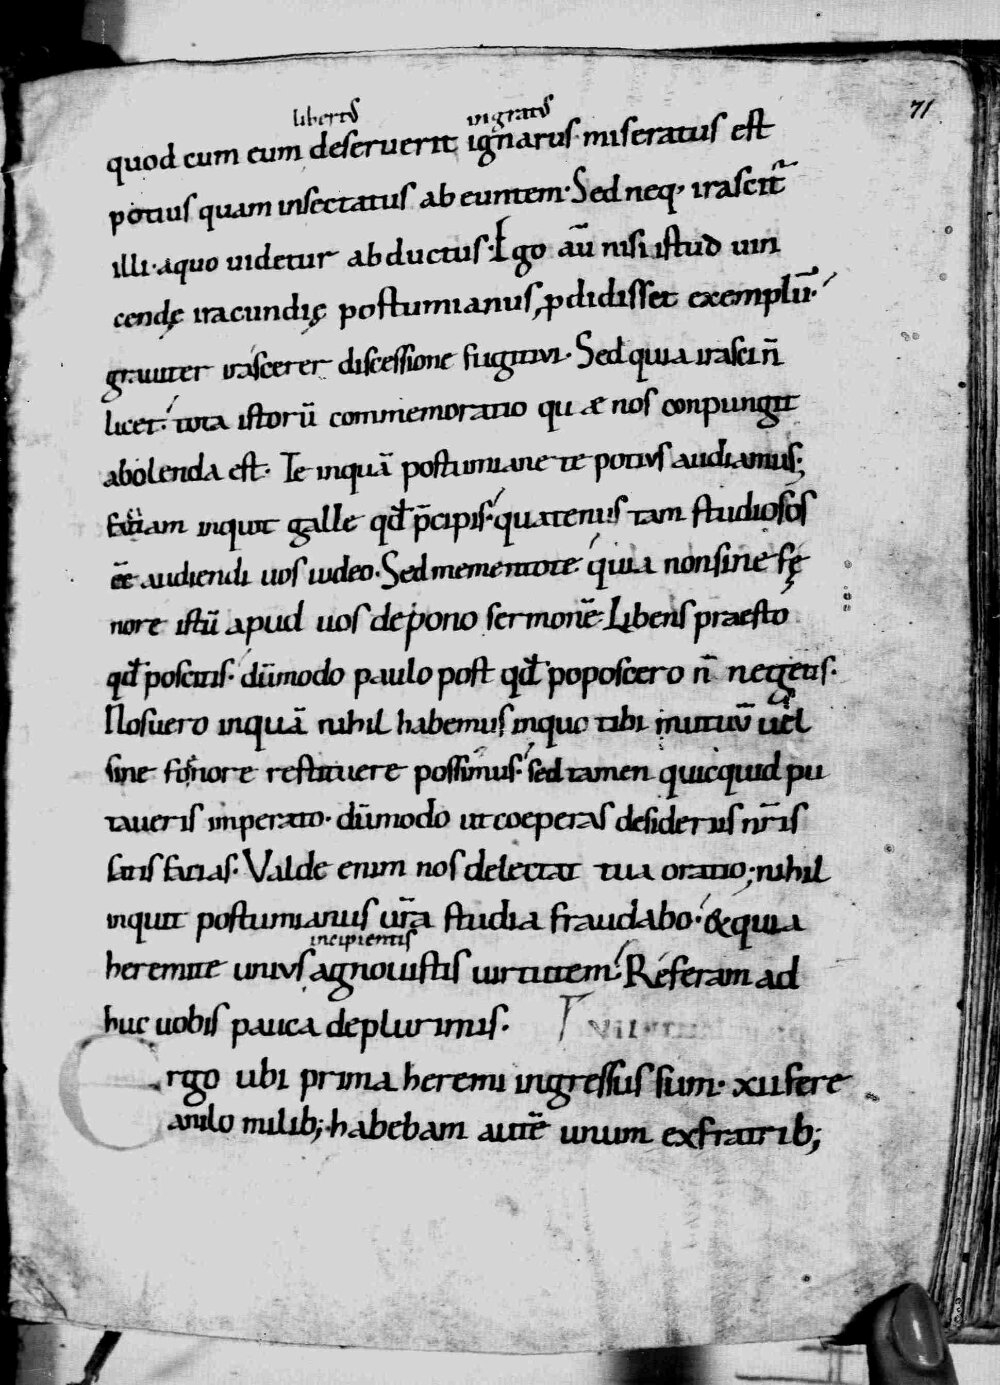 71
libertus ingratus
quod eum cum deseruerit ignarus miseratus est
potius quam insectatus abeuntem· Sed neq; irascit̃
illi· a quo videtur abductus· Ego aũ nisi istud vin
cendę iracundię postumianus p̱didisset exemplũ·
graviter irascerer discessione fugitivi· Sed quia irasci ñ
licet· tota istorũ commemoratio quæ nos conpungit
abolenda est· Te inquã postumiane te potius audiamus;
Faciam inquit galle qđ p̃cipis· quatenus tam studiosos
ẽe audiendi vos video· Sed mementote· quia non sine fę
nore istũ apud vos depono sermonẽ· Libens praesto
qđ poscitis· dũmodo paulo post qđ poposcero ñ negetis·
Nos vero inquã nihil habemus in quo tibi mutuũ vel
sine foenore restituere possimus· sed tamen quicquid pu
taveris imperato· dũmodo ut coeperas desideriis nr̃is
satis facias· Valde enim nos delectat tua oratio; nihil
inquit postumianus vr̃a studia fraudabo· & quia
incipientis
heremite unius agnovistis virtutem· Referam ad
huc vobis pauca de plurimis·
Ergo ubi prima heremi ingressus sum· xii fere
a nilo milib;· habebam autẽ unum ex fratrib;